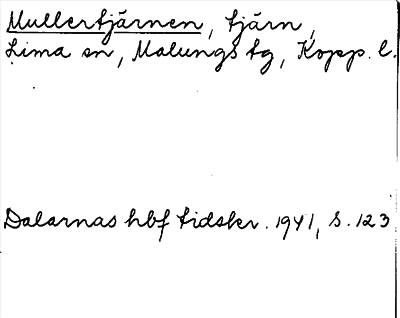 Mullertjärnen, tjärn,
Lima sn, Malungs tg, Kopp. l.
Dalarnas hbf tidskr. 1941, s. 123